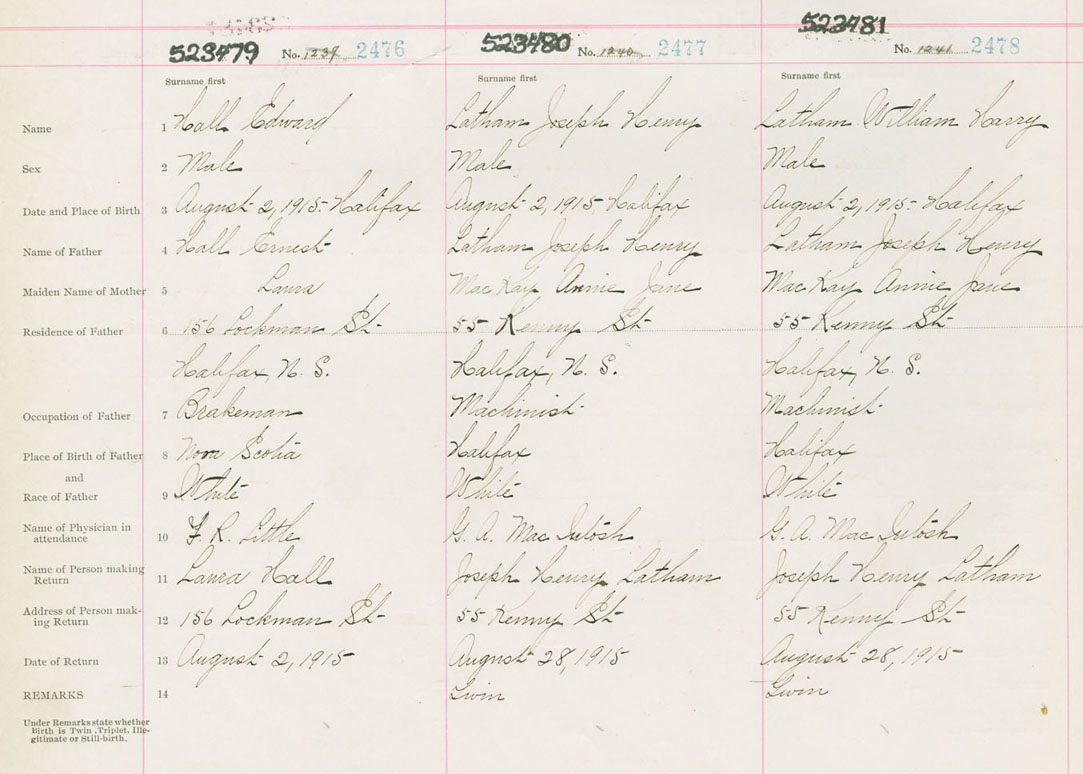 523479 No. 1239 2476 523480 No. 1240 2477 523481 No. 1241 2478
Surname first Surname first Surname first
Name 1 Hall Edward Latham Joseph Henry Latham William Harry
Sex 2 Male Male Male
Date and Place of Birth 3 August 2, 1915. Halifax August 2, 1915. Halifax August 2, 1915. Halifax
Name of Father 4 Hall Ernest Latham Joseph Henry Latham Joseph Henry
Maiden Name of Mother 5 Laura MacKay Annie Jane MacKay Annie Jane
Residence of Father 6 156 Lockman St. 55 Kenny St. 55 Kenny St.
Halifax, N. S. Halifax, N. S. Halifax, N. S.
Occupation of Father 7 Brakeman Machinist Machinist
Place of Birth of Father 8 Nova Scotia Halifax Halifax
and
Race of Father 9 White White White
Name of Physician in
attendance 10 F. R. Little G. A. MacIntosh G. A. MacIntosh
Name of Person making
Return 11 Laura Hall Joseph Henry Latham Joseph Henry Latham
Address of Person mak-
ing Return 12 156 Lockman St. 55 Kenny St. 55 Kenny St.
Date of Return 13 August 2, 1915 August 28, 1915 August 28, 1915
REMARKS 14 Twin Twin
Under Remarks state whether
Birth is Twin, Triplet, Ille-
gitimate or Still-birth.